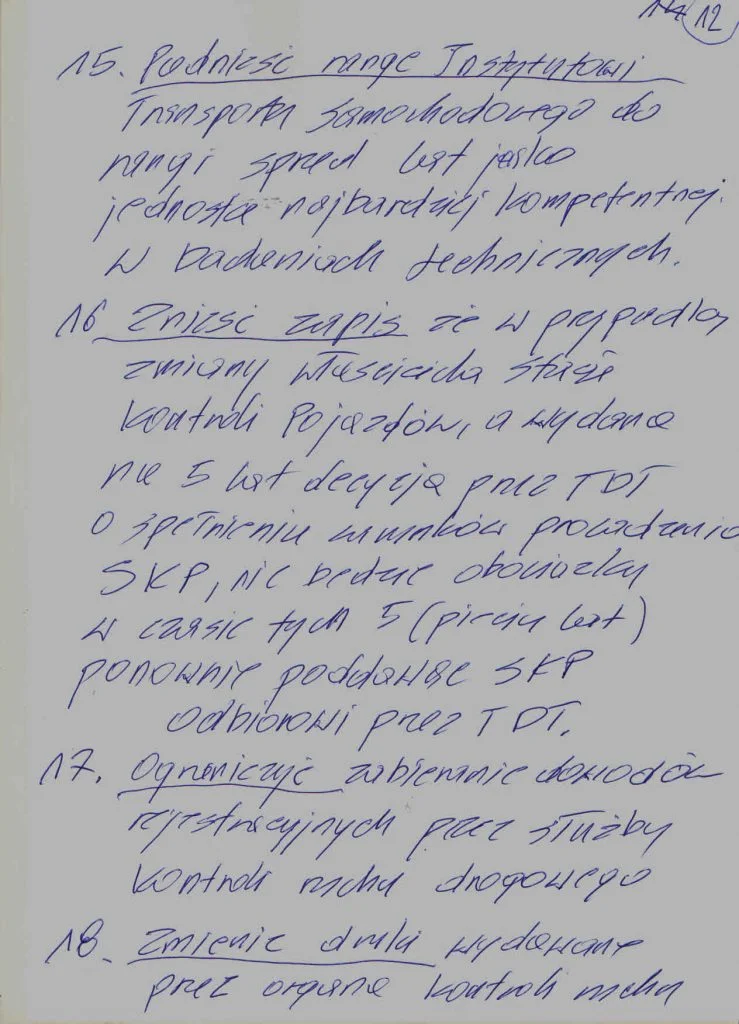 14 12
15. Podnieść rangę Instytutowi
Transportu Samochodowego do
rangi sprzed lat jako
jednostkę najbardziej kompetentnej
w badaniach technicznych.
16 Znieść zapis że w przypadku
zmiany właściciela Stacji
Kontroli Pojazdów, a wydaną
na 5 lat decyzją przez TDT
o spełnieniu warunków prowadzenia
SKP, nie będzie obowiązku
w czasie tych 5 (pięciu lat)
ponownie poddawać SKP
odbiorowi przez TDT.
17. Ograniczyć zabieranie dowodów
rejestracyjnych przez służby
kontroli ruchu drogowego
18. Zmienić druki wydawane
przez organa kontroli ruchu